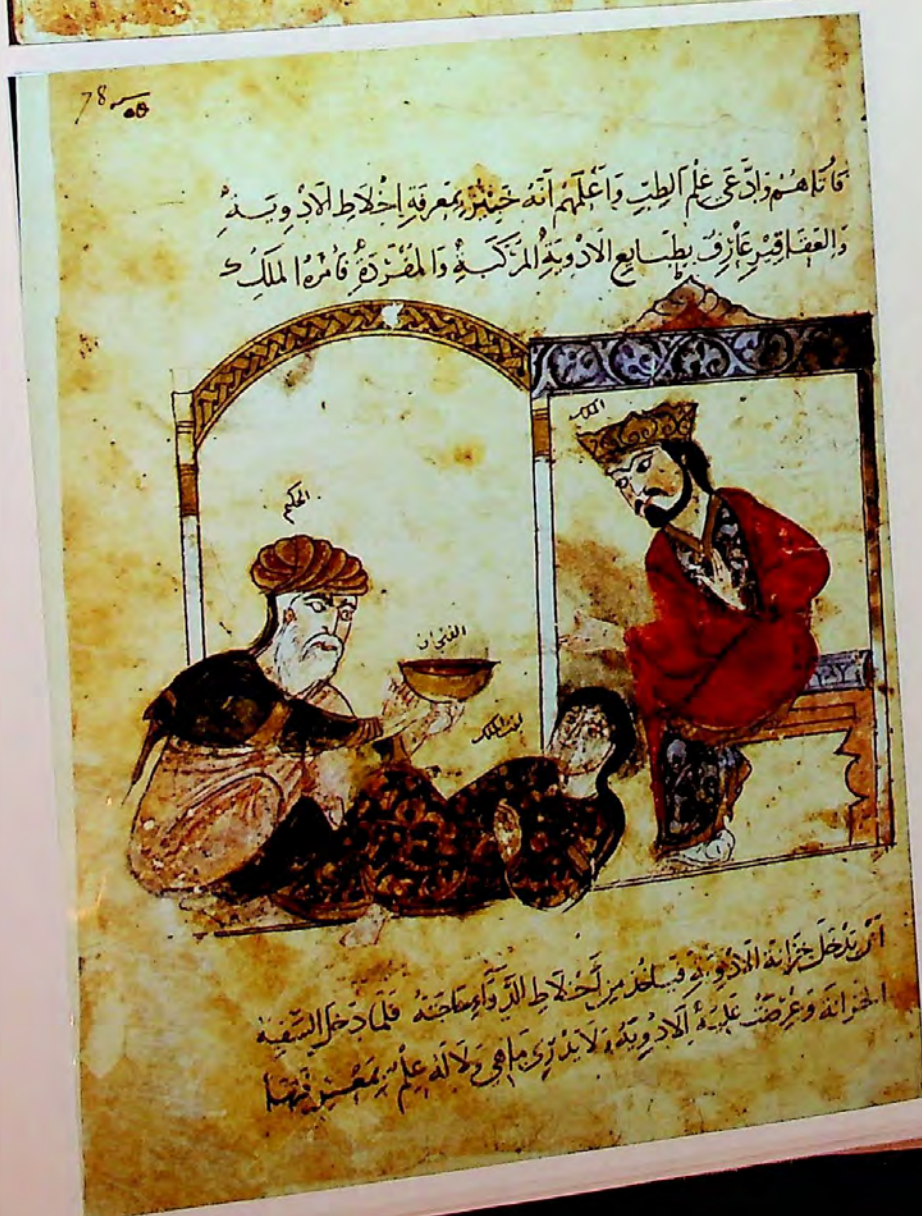 78
فَأَتَاهُمْ وَادَّعَى عِلْمَ الطِبِّ وَأَعْلَمَهُمْ أَنَّهُ خَبِيْرٌ بِمَعْرِفَةِ اِخْلَاطِ الْأَدْوِيَةِ
وَالْعَقَاقِيْرِ عَارِفٌ بِطَبَايِعِ الْأَدْوِيَةِ الْمُرَكَّبَةِ وَالْمُفْرَدَةِ فَأَمَرَهُ الْمَلِكُ
الملك
الحكيم
الفنجان
بنت الملك
أَنْ يَدْخُلَ خِزَانَةَ الْأَدْوِيَةِ فَيَاخُذَ مِنْ أَخْلَاطِ الدَّوَاءِ حَاجَتَهُ فَلَمَّا دَخَلَ السَّفِيهُ
الْخِزَانَةَ وَعُرِضَتْ عَلَيْهِ الْأَدْوِيَةُ لَا يَدْرِي مَا هِيَ وَلَا لَهُ عِلْمٌ بِمَعْرِفَتِهَا